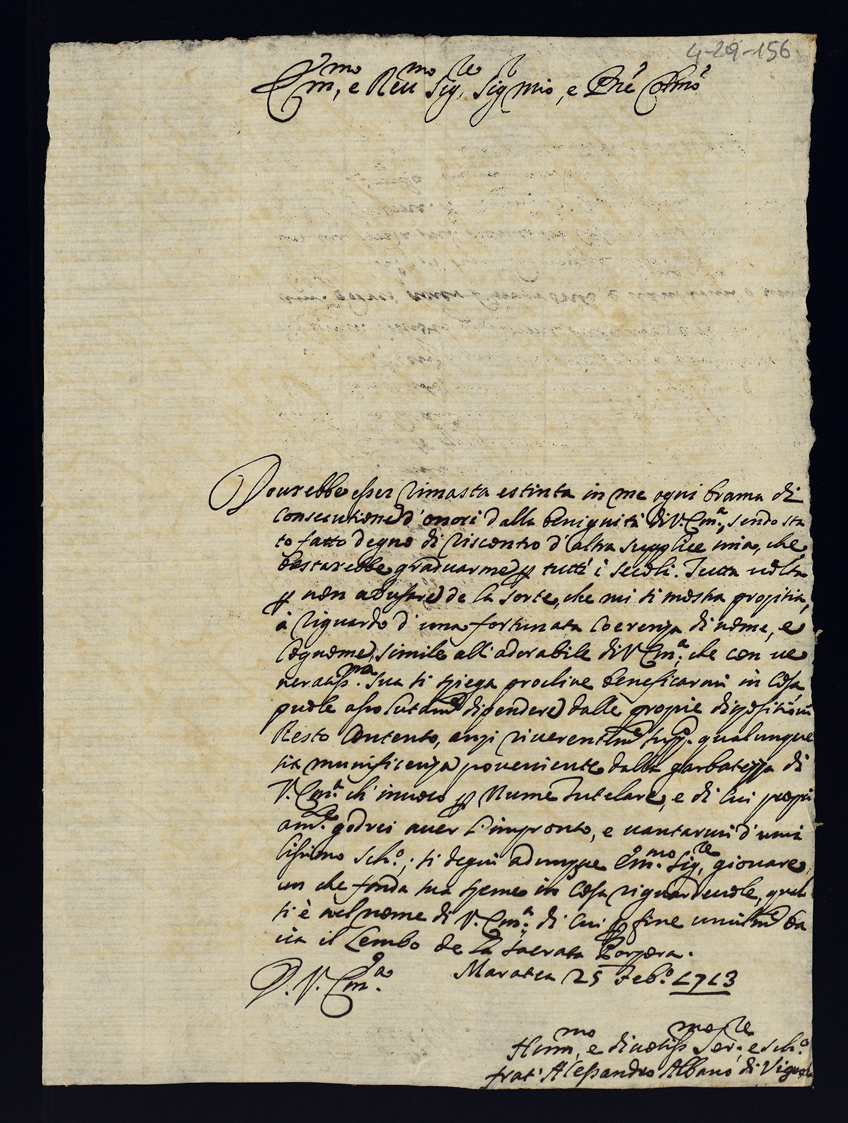 4-29-156
Em.mo, e Reu.mo Sig.re, Sig.r mio, e Pne Colmo
Dourebbe esser rimasta estinta in me ogni brama di
consecutione d'onori dalla benignità di V. Em.a, sendo sta
to fatto degno di riscontro d'altra supplice mia, che
bastarebbe graduarme p tutti i secoli. Tutta uolta
p non abusare de la sorte, che mi si mostra propitia,
à riguardo d'una fortunata Coerenza di nome, e
Cognome, simile all'adorabile di V. Em.a, che con ue
si spiega procliue beneficarmi in Cosa
puole dipendere dalle proprie
Resto Contento, anzi riuerentem.te supp. qualunque
sia munificenza proueniente dalla garbatezza di
V. Em.a ch'inuoco p Nume Tutelare, e di cui propri
am.te godrei auer l'impronto, e uantarmi d'umi
lissimo Sch.o; si degni adunque Em.mo Sig.re giouare
un che fonda sua speme in Cosa riguardeuole, qual
si è nel nome di V. Em.a di cui p fine umilm.te ba
cia il Lembo de la Sacrata Porpora.
D. V. Em.a
Maratea 25 Feb.o 1713
Hum.mo, e diuotiss.mo Ser.re e Sch.o
frat. Alessandro Albano di